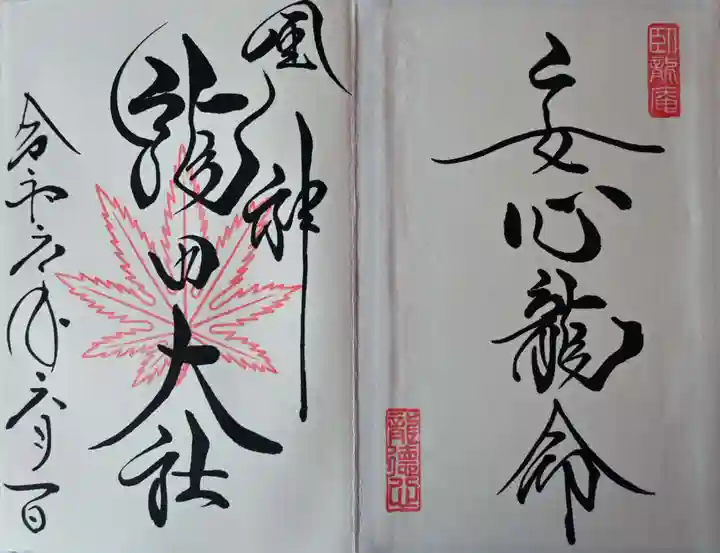 安心龍命
臥龍庵
風神
龍田大社
令和六年六月一日